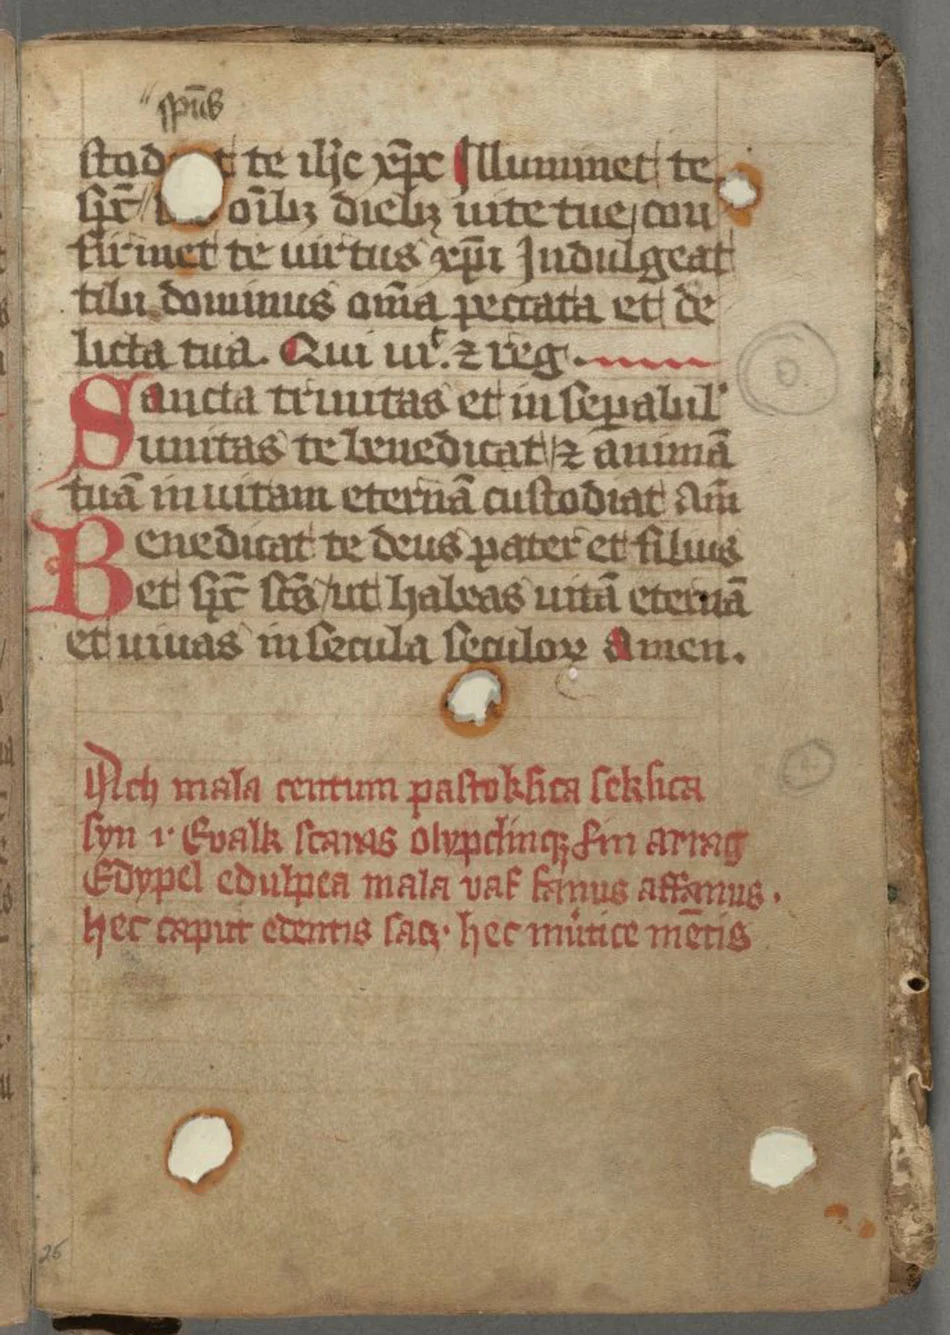 spūs
te ihc xpc Illuminet te
oīb3 dieb3 uite tue, con
firmet te uirtus xp̄i Indulgeat
tibi dominus om̄a peccata et de
licta tua. Qui uiͬ. ⁊ reg.
Sancta trinitas et inseparabil'
unitas te benedicat ⁊ animā
tuā in uitam eternā custodiat Am̄
Benedicat te deus pater et filius
et sp̄c sc̄s ut habeas uitā eternā
et uiuas in secula seculoꝝ Amen.
mala centum pastoksica seksica
syn Evalk
Edypel edulpea mala affanus.
hec caput edentis hec mētis
26